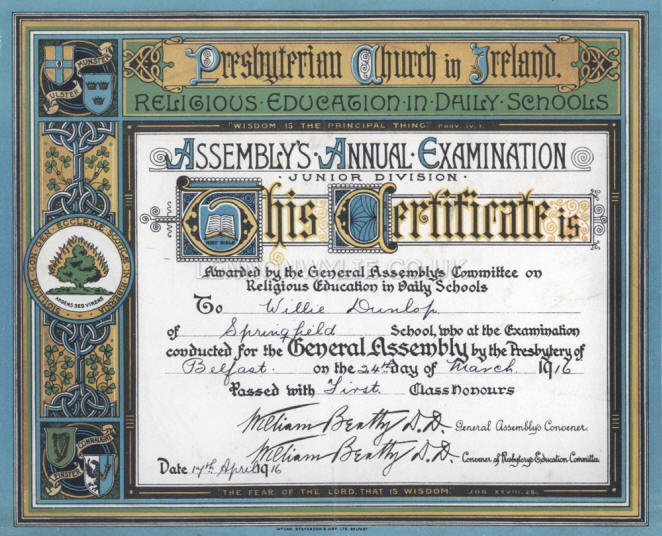 Presbyterian Church in Ireland.
RELIGIOUS·EDUCATION·IN·DAILY·SCHOOLS
MUNSTER
ULSTER
"WISDOM IS THE PRINCIPAL THING." PROV. IV. 7.
ASSEMBLY'S·ANNUAL·EXAMINATION
·JUNIOR DIVISION·
This Certificate is
HOLY BIBLE
Awarded by the General Assembly's Committee on
Religious Education in Daily Schools
To Willie Dunlop
of Springfield School, who at the Examination
conducted for the General Assembly by the Presbytery of
Belfast. on the 24th day of March 1916
Passed with First Class Honours
ARDENS SED VIRENS
William Beatty D.D. General Assembly's Convener.
William Beatty D.D. Convener of Presbytery's Education Committee.
Date 17th April 1916
CONNAUGHT
LINSTER
"THE FEAR OF THE LORD, THAT IS WISDOM" JOB. XXVIII. 28.